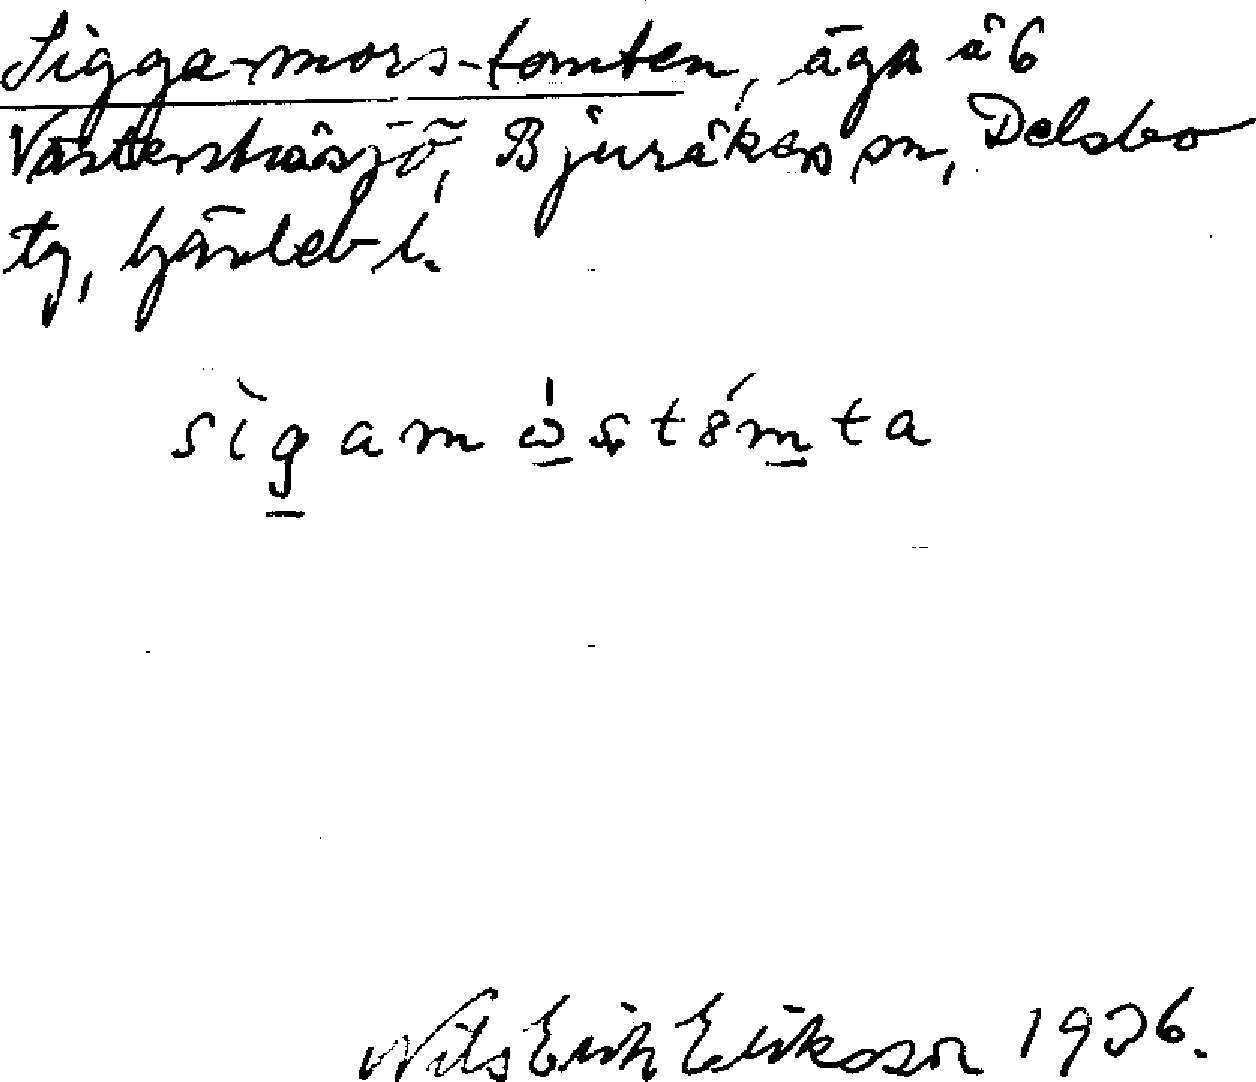 Sigga-mors-tomten, äga å 6
Västerstråsjö, Bjuråkers sn, Delsbo
tg, Gävleb l.
sìgamωstómta
Nils Erik Eriksson 1936.